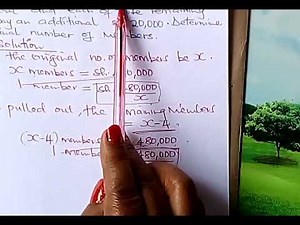 and each of the remaining
pay an additional 20,000. Determine
number of members.
Solution
the original no. of members be x.
x members = sh. 0,000
1 member = sh. 80,000
x
pulled out, the remaining Members
= x-4
(x-4) members 480,000
1 member 480,000